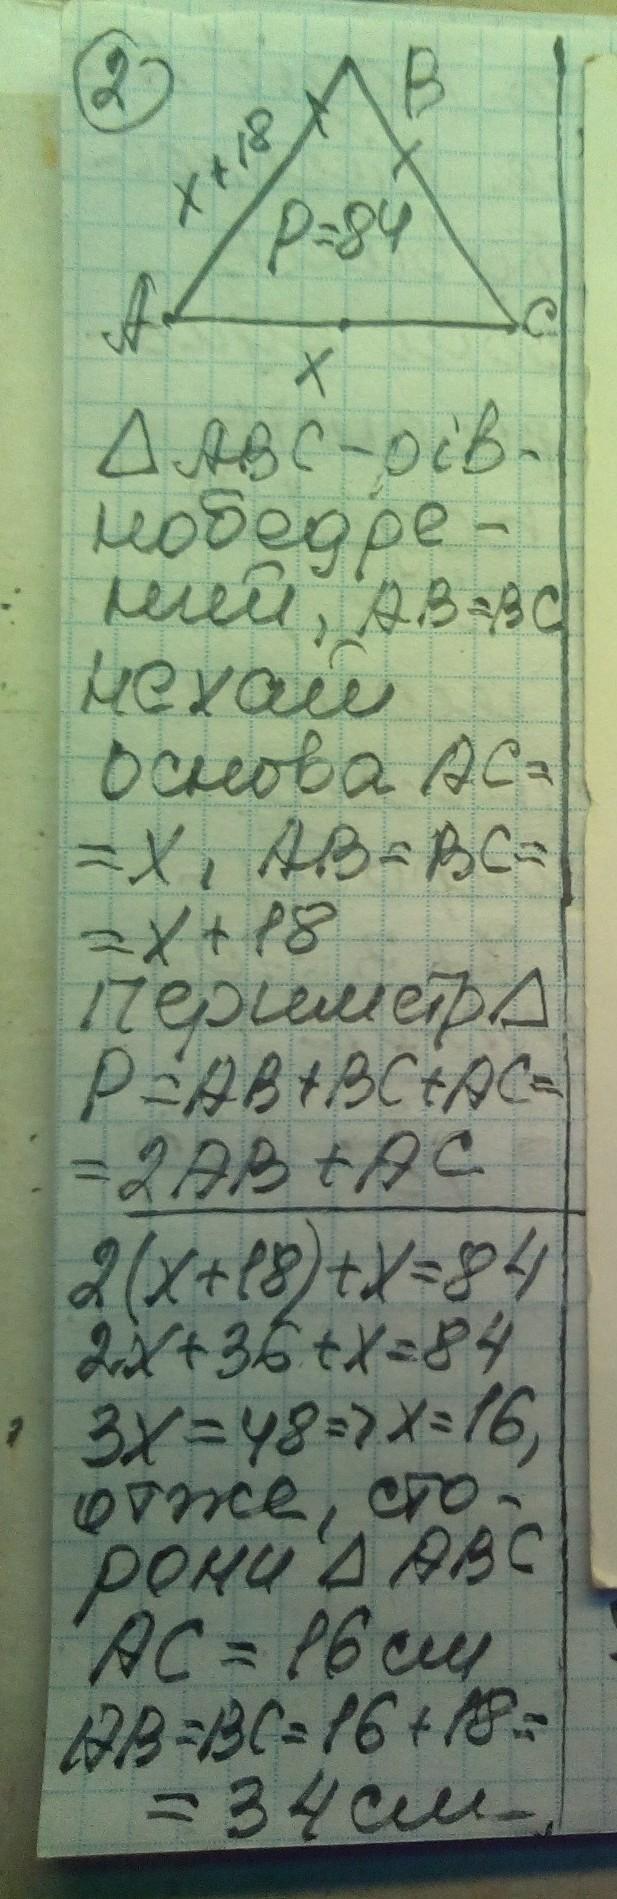 2
B
x+18
P=84
A
C
x
△ABC-рів-
нобедре-
ний, AB=BC
нехай
основа AC=
=x, AB=BC=
=x+18
Периметр△
P=AB+BC+AC=
=2AB+AC
2(x+18)+x=84
2x+36+x=84
3x=48=>x=16,
отже, сто-
рони △ABC
AC=16см
AB=BC=16+18=
=34см